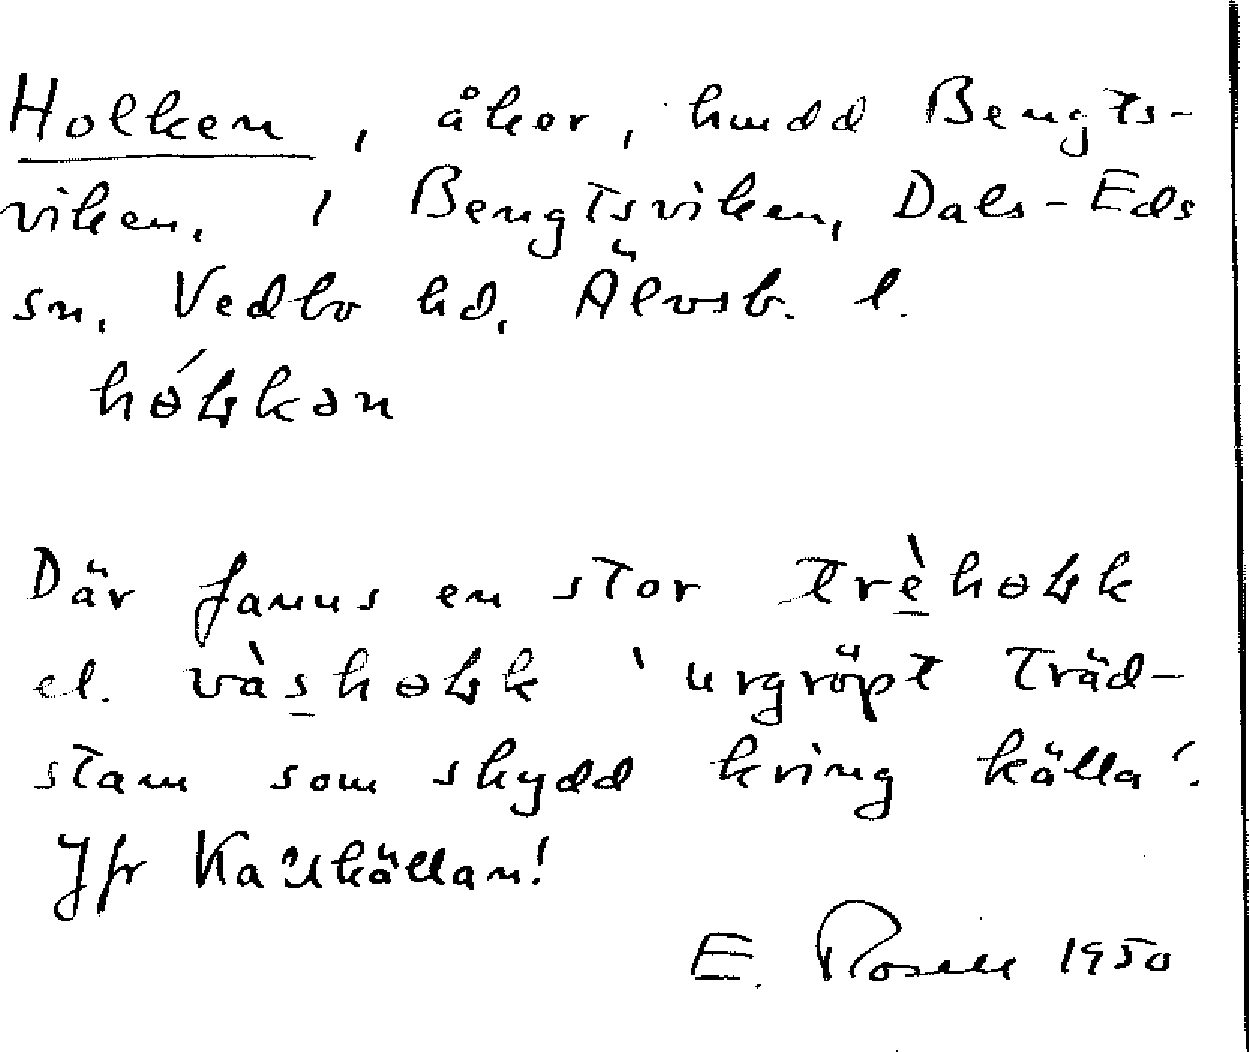 Holken, åker, hmdd Bengts-
viken, / Bengtsviken, Dals-Eds
sn, Vedbo hd, Älvsb. l.
Där fanns en stor
el. 'urgröpt träd-
stam som skydd kring källa'.
Jfr Kallkällan!
E. Rosell 1950